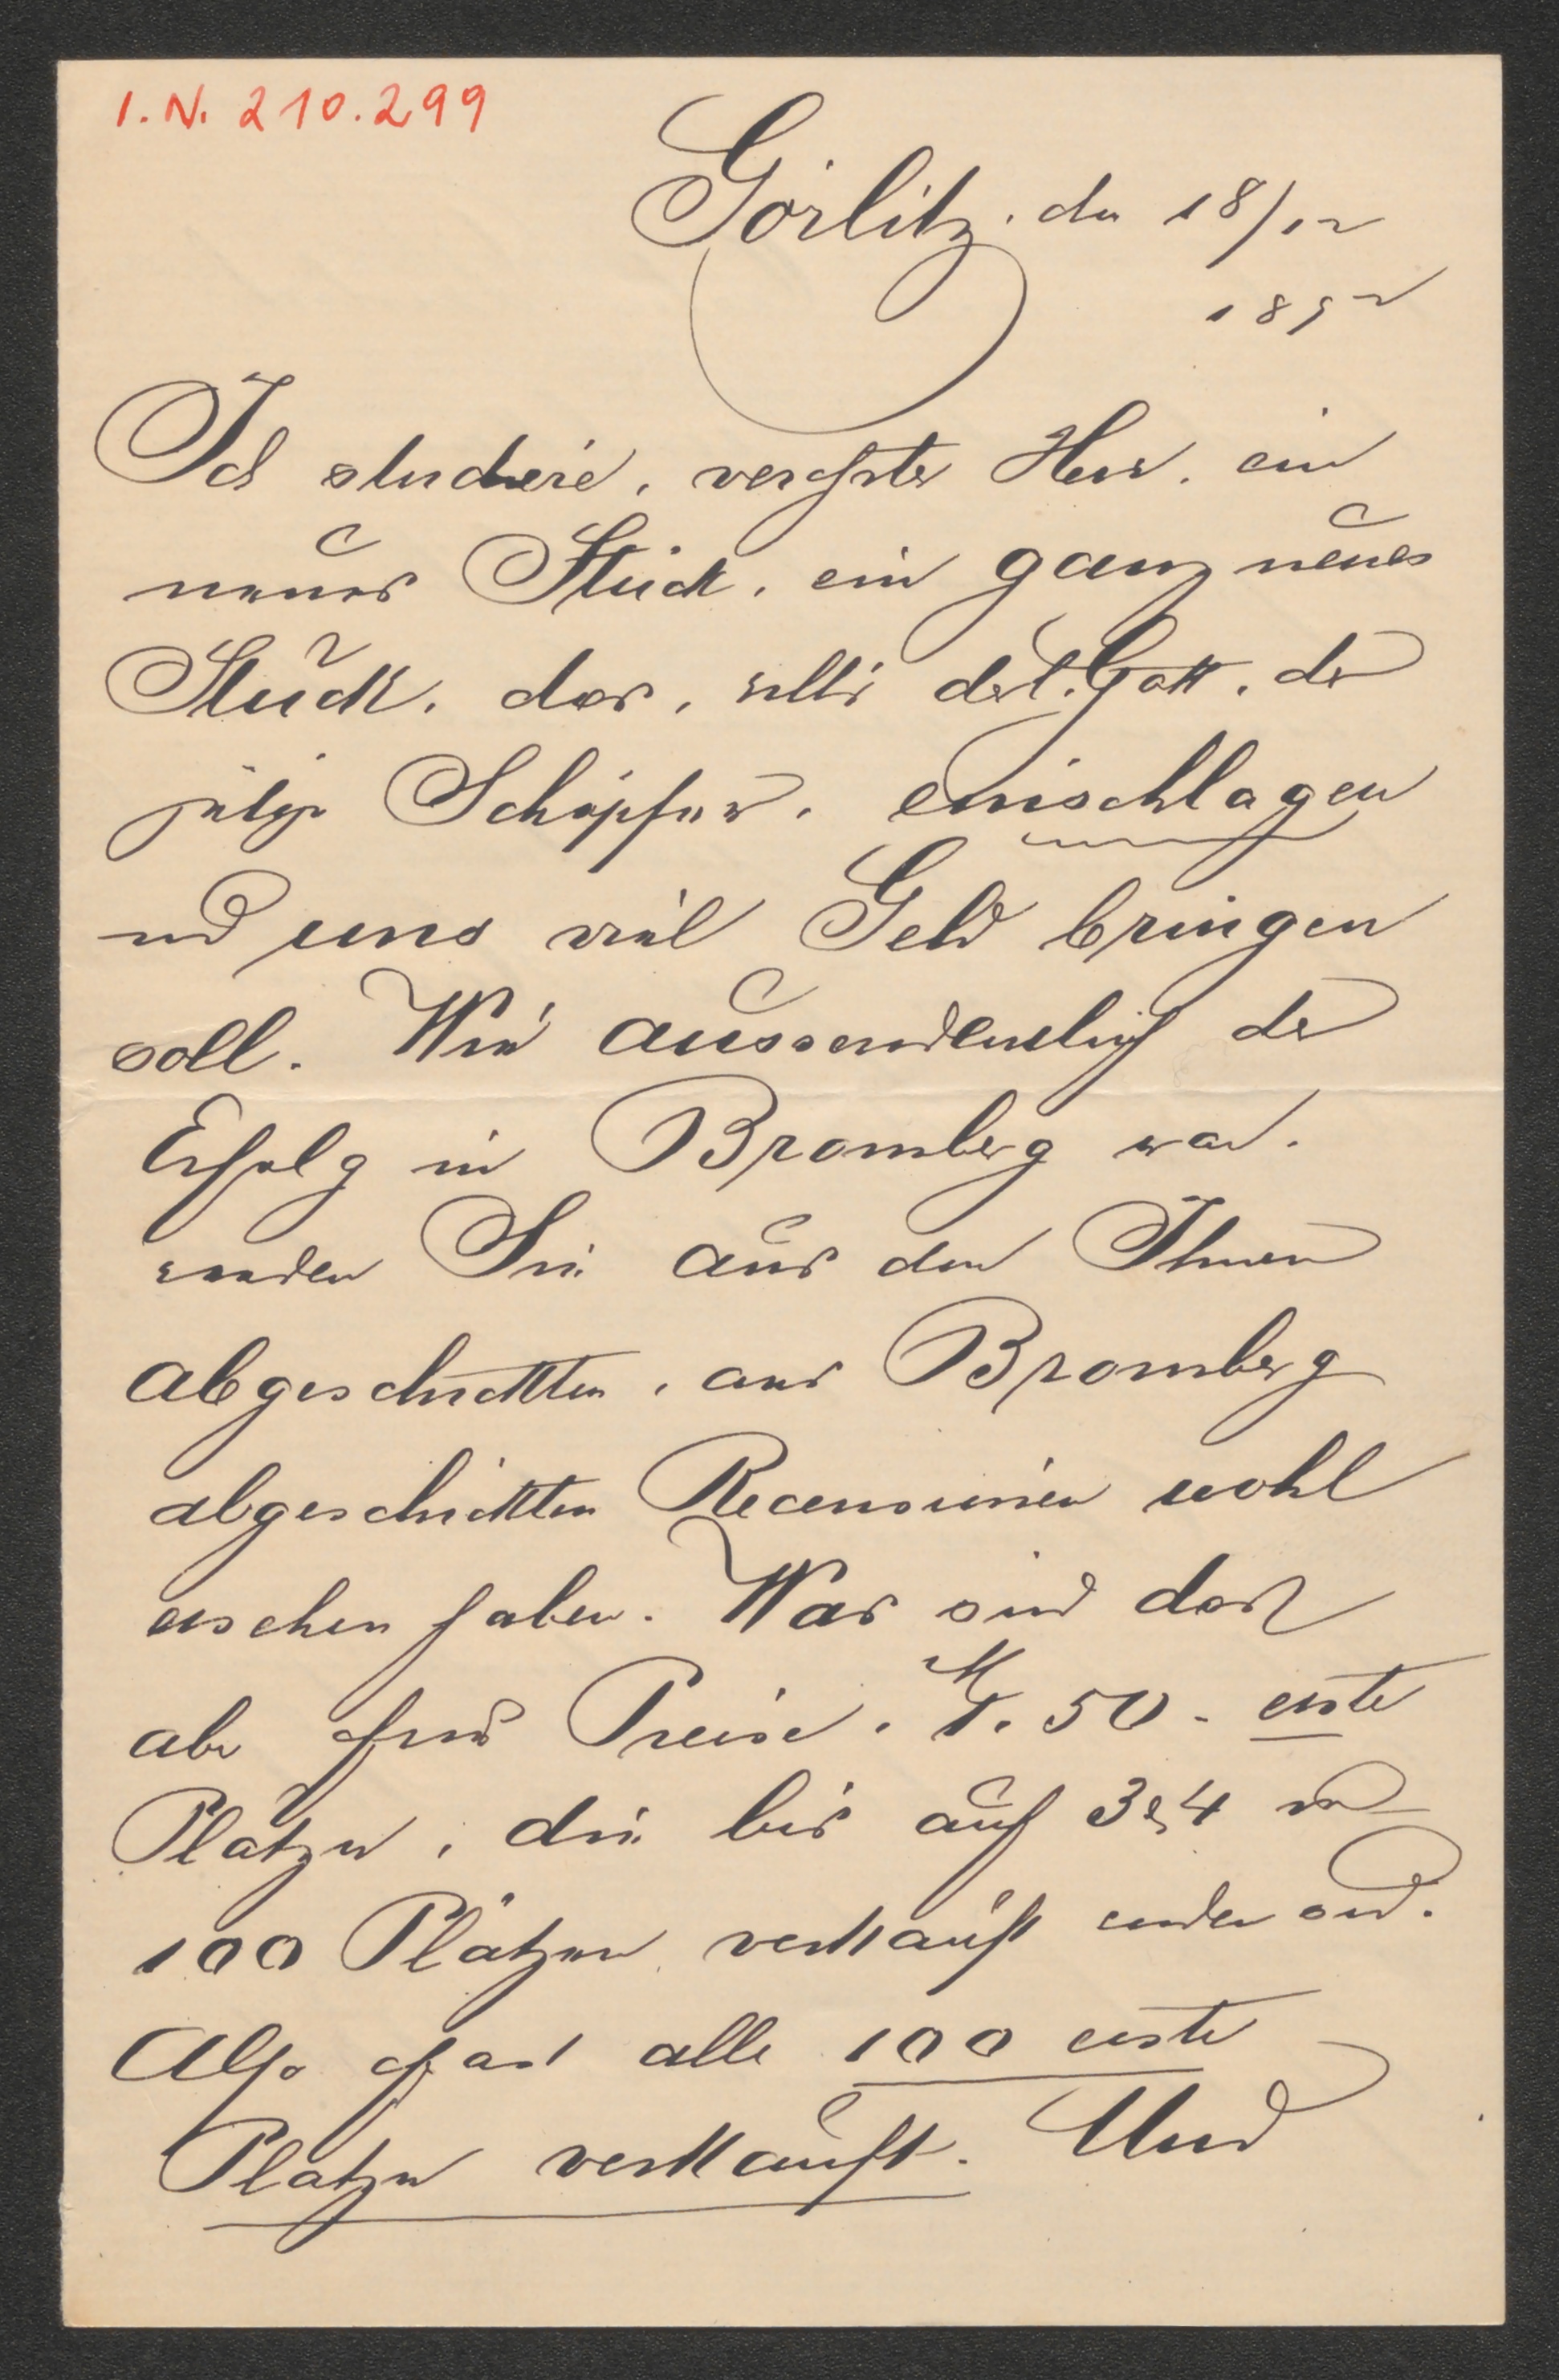 I. N. 210.299
Görlitz, den 18/12
1892
Ich studiere, verehrter Herr, ein
neues Stück, ein ganz neues
Stück, das, will's der l. Gott, der
gütige Schöpfer, einschlagen
und uns viel Geld bringen
soll. Wie ausserordentlich der
Erfolg in Bromberg war,
werden Sie aus den Ihnen
abgeschickten, aus Bromberg
abgeschickten Recensionen wohl
ersehen haben. Was sind dort
aber für Preise. M 1.50 - erste
Plätze, die bis auf 3 & 4 von
100 Plätzen verkauft worden sind.
Also fast alle 100 erste
Plätze verkauft. Und